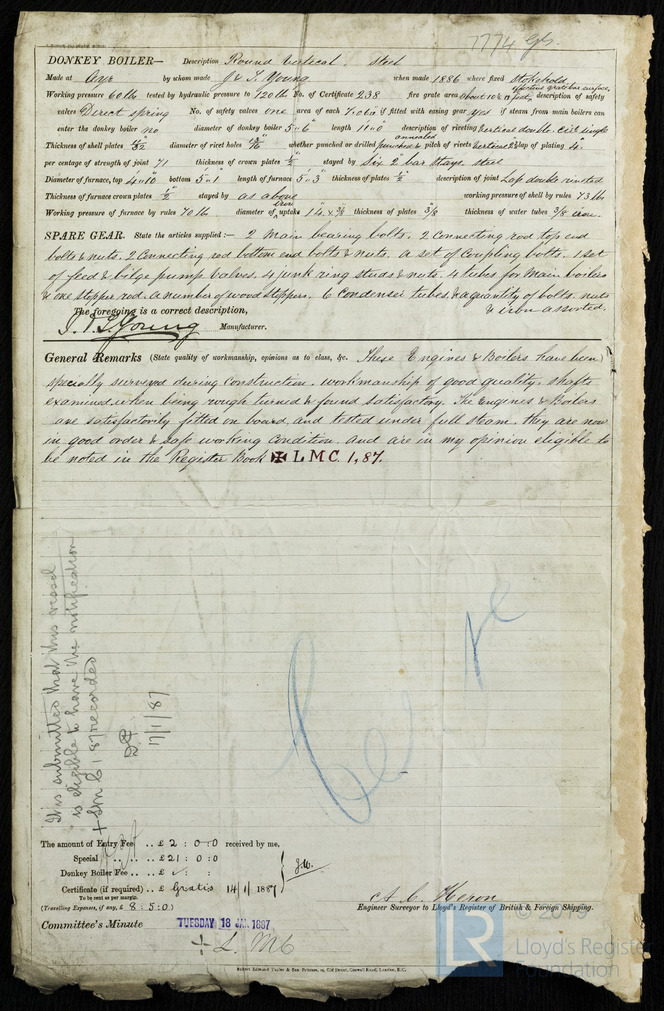 7774 Gls.
DONKEY BOILER— Description Round Vertical. Steel
Made at Ayr by whom made J & T. Young when made 1886 where fixed Stokehold
effective grate bar surface
Working pressure 60 lb tested by hydraulic pressure to 120 lb No. of Certificate 238 fire grate area about 10 ft description of safety
valves Direct spring No. of safety valves one area of each 7.06" if fitted with easing gear yes if steam from main boilers can
enter the donkey boiler no diameter of donkey boiler 5'-6" length 11'-0" description of riveting Vertical double. Cir. single
annealed
Thickness of shell plates 13/32" diameter of rivet holes whether punched or drilled punched & pitch of rivets lap of plating 4"
per centage of strength of joint 71 thickness of crown plates 1/2" stayed by Six 2" bar stays steel
Diameter of furnace, top 4'-10" bottom 5'-1" length of furnace 5'-3" thickness of plates 1/2" description of joint Lap double riveted
Thickness of furnace crown plates 1/2" stayed by as above working pressure of shell by rules 73 lb
Working pressure of furnace by rules 70 lb diameter of uptake 14" thickness of plates 3/8 thickness of water tubes 3/8 iron.
SPARE GEAR. State the articles supplied:— 2 Main bearing bolts. 2 Connecting rod top end
bolts & nuts. 2 Connecting rod bottom end bolts & nuts. a set of coupling bolts. 1 set
of feed & bilge pump valves. 4 junk ring studs & nuts. 4 tubes for Main boilers
& one stopper rod. a number of wood stoppers. 6 Condenser tubes. & a quantity of bolts. nuts
& iron assorted.
The foregoing is a correct description,
J. & T. Young Manufacturer.
General Remarks (State quality of workmanship, opinions as to class, &c. These Engines & Boilers have been
specially surveyed during construction. workmanship of good quality. shafts
examined when being rough turned & found satisfactory. The Engines & Boilers
are satisfactorily fitted on board, and tested under full steam. they are now
in good order & safe working condition. and are in my opinion eligible to
be noted in the Register Book ✠ L M C. 1,87.
It is submitted that this vessel
is eligible to have the notification
+ LMC 1 87 recorded
17/1/87
The amount of Entry Fee .. £ 2 : 0 : 0 received by me,
Special .. .. £ 21 : 0 : 0
Donkey Boiler Fee .. £ : :
Certificate (if required) .. £ Gratis 14/1/1887
To be sent as per margin.
(Travelling Expenses, if any, £ 8 : 5 : 0)
A. C. Heron
Engineer Surveyor to Lloyd's Register of British & Foreign Shipping.
Committee's Minute TUESDAY 18 JAN. 1887
+ L. M C
Robert Edmund Taylor & Son Printers, 19, Old Street, Goswell Road, London, E.C.
© 2019
LR
Lloyd's Register
Foundation